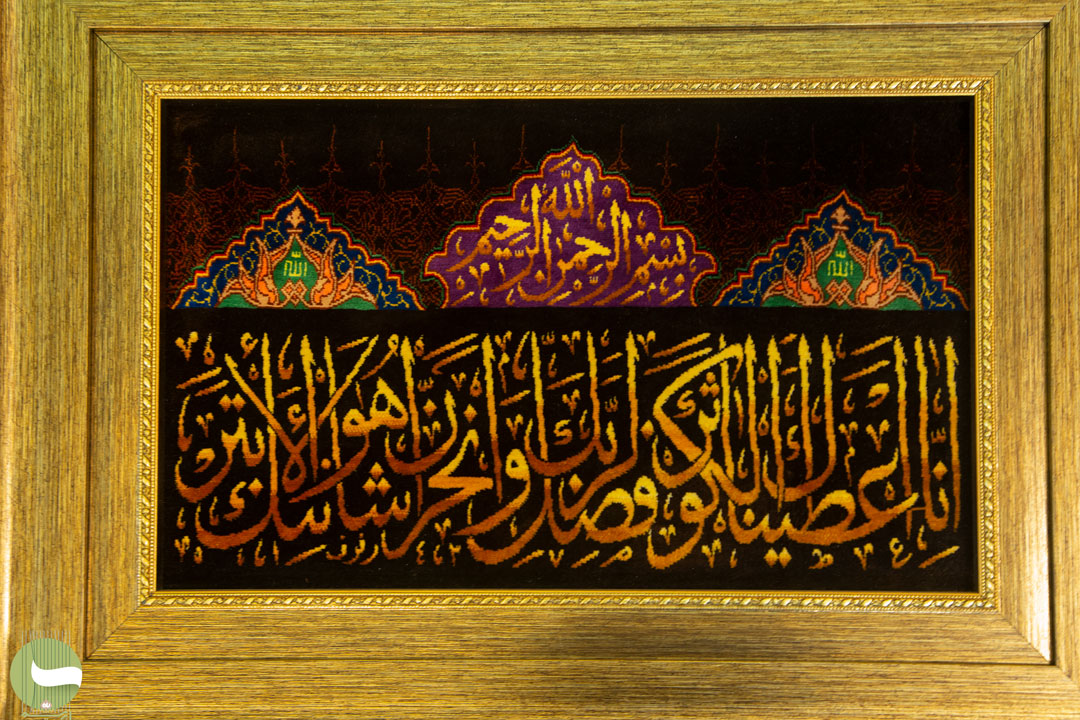 بسم الله الرحمن الرحيم
الله
الله
إنا أعطيناك الكوثر فصل لربك وانحر إن شانئك هو الأبتر